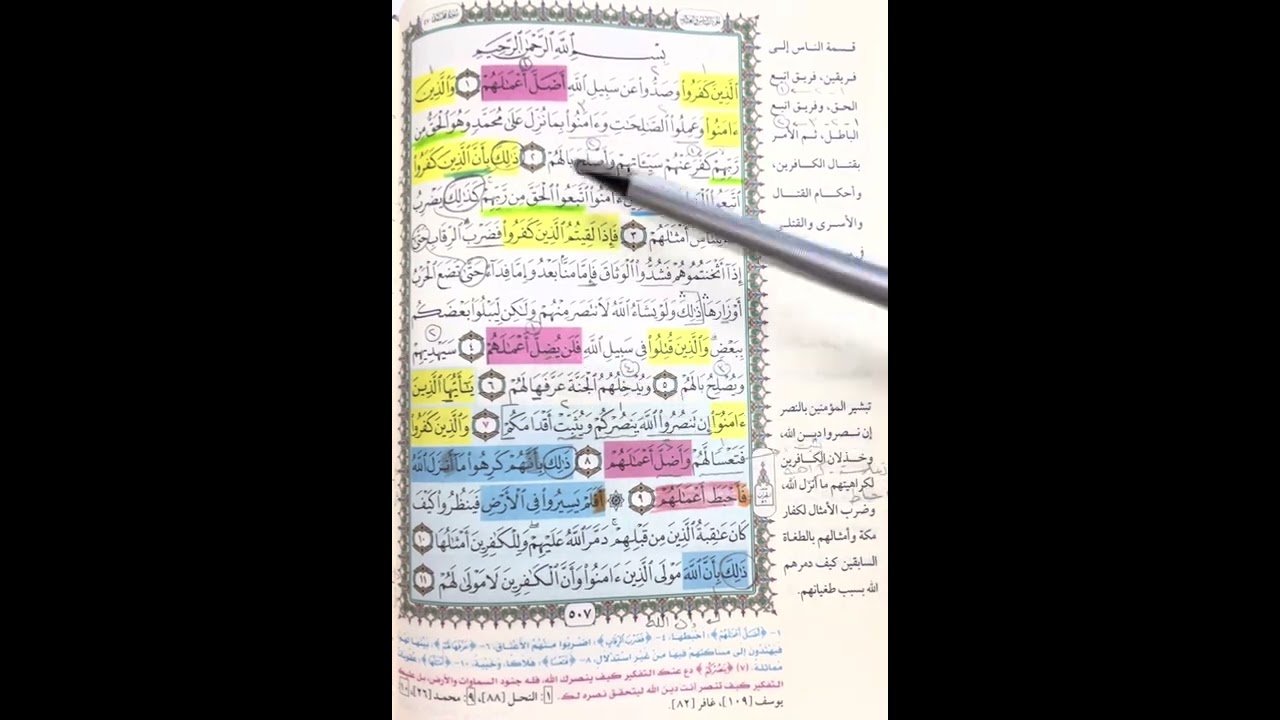 بِسْمِ ٱللَّهِ ٱلرَّحْمَٰنِ ٱلرَّحِيمِ
ٱلَّذِينَ كَفَرُوا۟ وَصَدُّوا۟ عَن سَبِيلِ ٱللَّهِ أَضَلَّ أَعْمَٰلَهُمْ ١ وَٱلَّذِينَ
ءَامَنُوا۟ وَعَمِلُوا۟ ٱلصَّٰلِحَٰتِ وَءَامَنُوا۟ بِمَا نُزِّلَ عَلَىٰ مُحَمَّدٍ وَهُوَ ٱلْحَقُّ مِن
رَّبِّهِمْ كَفَّرَ عَنْهُمْ سَيِّـَٔاتِهِمْ وَأَصْلَحَ بَالَهُمْ ٢ ذَٰلِكَ بِأَنَّ ٱلَّذِينَ كَفَرُوا۟
ٱتَّبَعُوا۟ ءَامَنُوا۟ ٱتَّبَعُوا۟ ٱلْحَقَّ مِن رَّبِّهِمْ كَذَٰلِكَ يَضْرِبُ
أَمْثَٰلَهُمْ ٣ فَإِذَا لَقِيتُمُ ٱلَّذِينَ كَفَرُوا۟ فَضَرْبَ ٱلرِّقَابِ حَتَّىٰ
إِذَآ أَثْخَنتُمُوهُمْ فَشُدُّوا۟ ٱلْوَثَاقَ فَإِمَّا مَنًّۢا بَعْدُ وَإِمَّا فِدَآءً حَتَّىٰ تَضَعَ ٱلْحَرْبُ
أَوْزَارَهَا ذَٰلِكَ وَلَوْ يَشَآءُ ٱللَّهُ لَٱنتَصَرَ مِنْهُمْ وَلَٰكِن لِّيَبْلُوَا۟ بَعْضَكُم
بِبَعْضٍ وَٱلَّذِينَ قُتِلُوا۟ فِى سَبِيلِ ٱللَّهِ فَلَن يُضِلَّ أَعْمَٰلَهُمْ ٤ سَيَهْدِيهِمْ
وَيُصْلِحُ بَالَهُمْ ٥ وَيُدْخِلُهُمُ ٱلْجَنَّةَ عَرَّفَهَا لَهُمْ ٦ يَٰٓأَيُّهَا ٱلَّذِينَ
ءَامَنُوٓا۟ إِن تَنصُرُوا۟ ٱللَّهَ يَنصُرْكُمْ وَيُثَبِّتْ أَقْدَامَكُمْ ٧ وَٱلَّذِينَ كَفَرُوا۟
فَتَعْسًا لَّهُمْ وَأَضَلَّ أَعْمَٰلَهُمْ ٨ ذَٰلِكَ بِأَنَّهُمْ كَرِهُوا۟ مَآ أَنزَلَ ٱللَّهُ
فَأَحْبَطَ أَعْمَٰلَهُمْ ٩ ۞ أَفَلَمْ يَسِيرُوا۟ فِى ٱلْأَرْضِ فَيَنظُرُوا۟ كَيْفَ
كَانَ عَٰقِبَةُ ٱلَّذِينَ مِن قَبْلِهِمْ دَمَّرَ ٱللَّهُ عَلَيْهِمْ وَلِلْكَٰفِرِينَ أَمْثَٰلُهَا ١٠
ذَٰلِكَ بِأَنَّ ٱللَّهَ مَوْلَى ٱلَّذِينَ ءَامَنُوا۟ وَأَنَّ ٱلْكَٰفِرِينَ لَا مَوْلَىٰ لَهُمْ ١١
٥٠٧
قسمة الناس إلى
فريقين، فريق اتبع
الحق، وفريق اتبع
الباطل، ثم الأمر
بقتال الكافرين،
وأحكام القتال
والأسرى والقتلى
تبشير المؤمنين بالنصر
إن نصروا دين الله،
وخذلان الكافرين
لكراهيتهم ما أنزل الله،
وضرب الأمثال لكفار
مكة وأمثالهم بالطغاة
السابقين كيف دمرهم
الله بسبب طغيانهم.
١- ﴿أَضَلَّ أَعْمَالَهُمْ﴾: أحبطها، ٤- ﴿فَضَرْبَ الرِّقَابِ﴾: اضربوا منهم الأعناق، ٦- ﴿عَرَّفَهَا لَهُمْ﴾: بينها لهم
فيهتدون إلى مساكنهم فيها من غير استدلال، ٨- ﴿فَتَعْسًا﴾: هلاكا، وخيبة، ١٠- ﴿أَمْثَالُهَا﴾:
مماثلة. (٧) ﴿يَنصُرْكُمْ﴾ دع عنك التفكير كيف ينصرك الله، فلله جنود السماوات والأرض، بل عليك
التفكير كيف تنصر أنت دين الله ليتحقق نصره لك. ١: النحل [٨٨]، ٩: محمد [٢٦]،
يوسف [١٠٩]، غافر [٨٢].